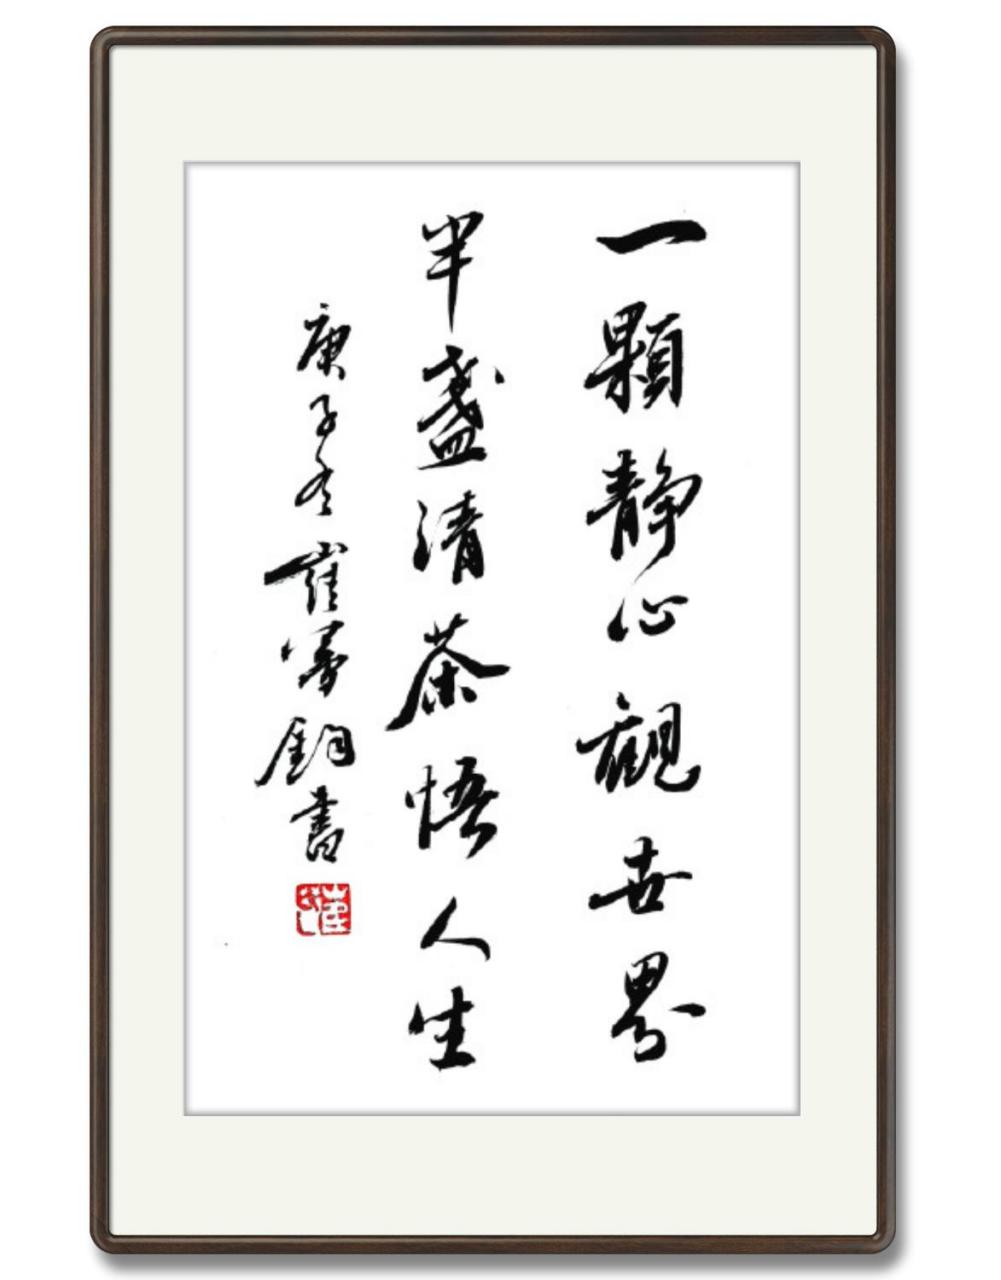 一顆静心觀世界
半盞清茶悟人生
庚子冬崔書